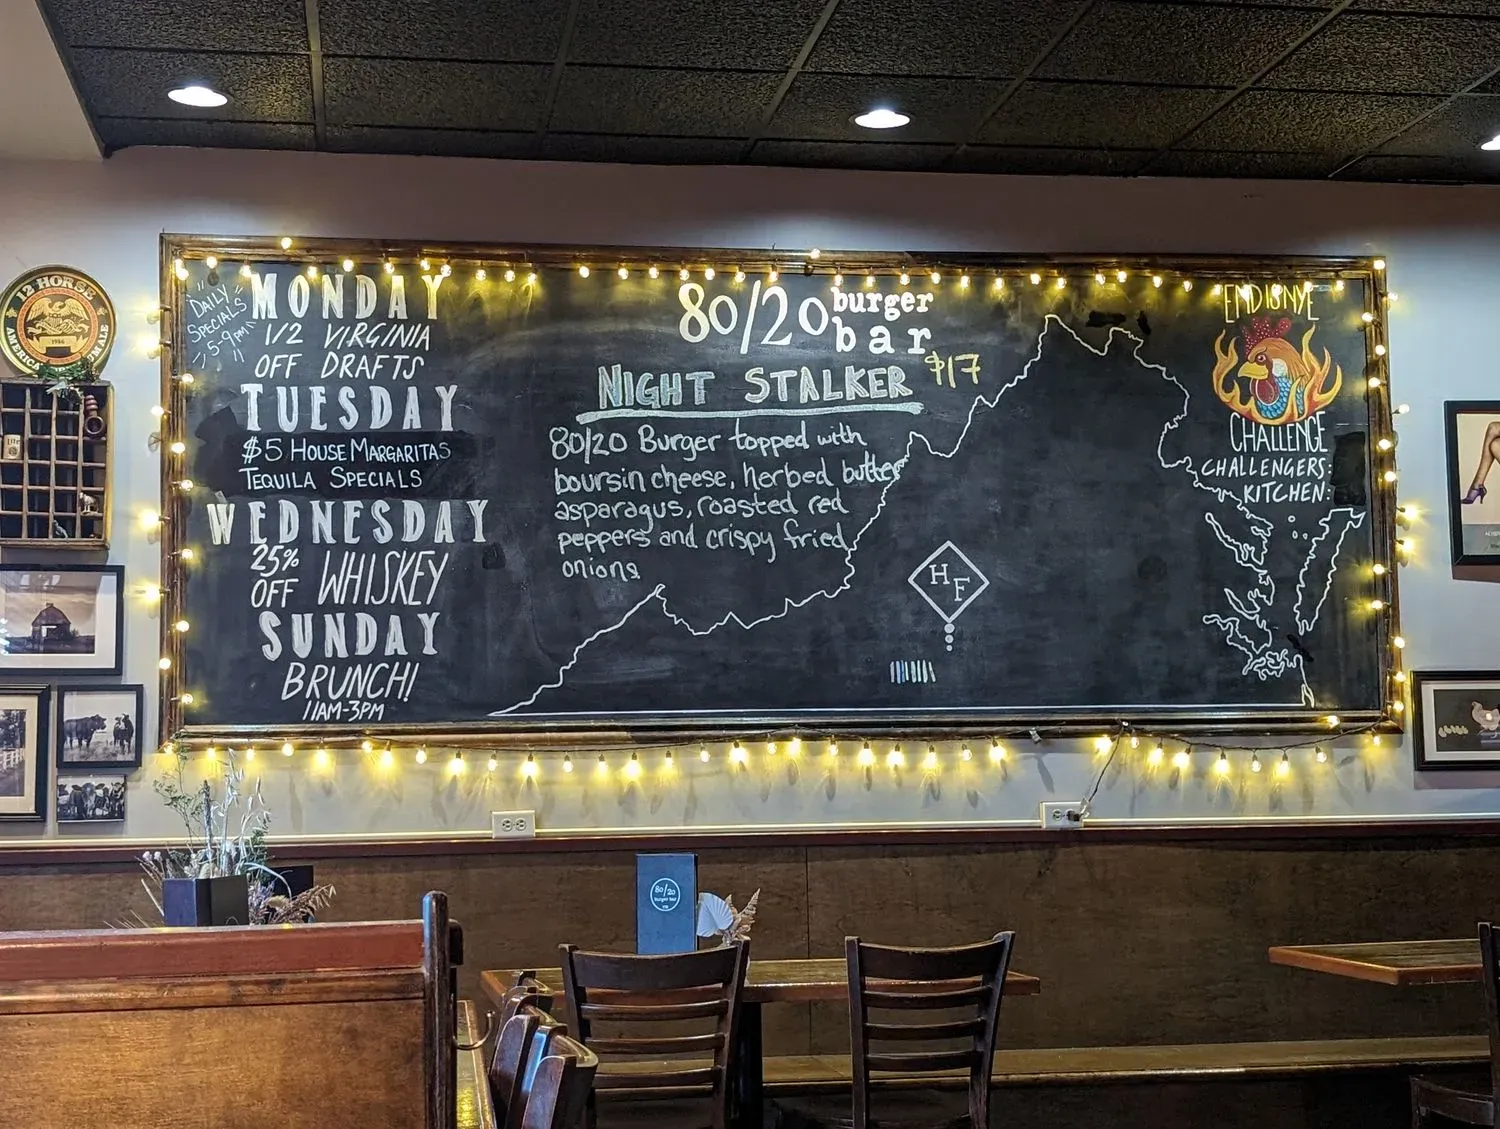 DAILY
SPECIALS
5-9PM
MONDAY
1/2 VIRGINIA
OFF DRAFTS
TUESDAY
$5 HOUSE MARGARITAS
TEQUILA SPECIALS
WEDNESDAY
25%
OFF WHISKEY
SUNDAY
BRUNCH!
11AM-3PM
80/20 burger
bar
NIGHT STALKER $17
80/20 Burger topped with
boursin cheese, herbed butter
asparagus, roasted red
peppers and crispy fried
onions
H
F
END IS NYE
CHALLENGE
CHALLENGERS:
KITCHEN:
12 HORSE
80/20
burger bar